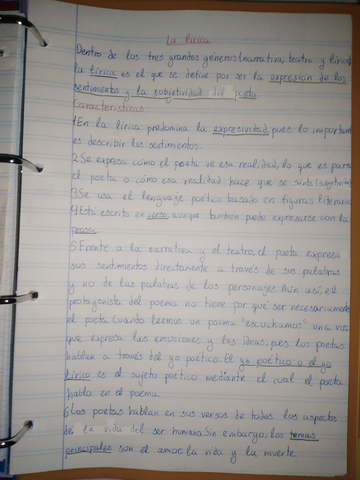 La lírica
Dentro de los tres grandes géneros (narrativa, teatro y lírica)
la lírica es el que se define por ser la expresión de los
sentimientos y la subjetividad del poeta.
Características
1 En la lírica predomina la expresividad, pues lo importante
es describir los sentimientos.
2. Se expresa cómo el poeta ve esa realidad, lo que es para
el poeta o cómo esa realidad hace que se sienta (subjetividad)
3. Se usa el lenguaje poético basado en figuras literarias
4) Está escrito en verso, aunque también puede expresarse con la
prosa.
5. Frente a la narrativa y el teatro, el poeta expresa
sus sentimientos directamente a través de sus palabras
y no de las palabras de los personajes. Aún así, el
protagonista del poema no tiene por qué ser necesariamente
el poeta. Cuando leemos un poema "escuchamos" una voz
que expresa las emociones y las ideas, pues los poetas
hablan a través del yo poético. El yo poético o el yo
lírico es el sujeto poético mediante el cual el poeta
habla en el poema.
6. Los poetas hablan en sus versos de todos los aspectos
de la vida del ser humano. Sin embargo, los temas
principales son el amor, la vida y la muerte.